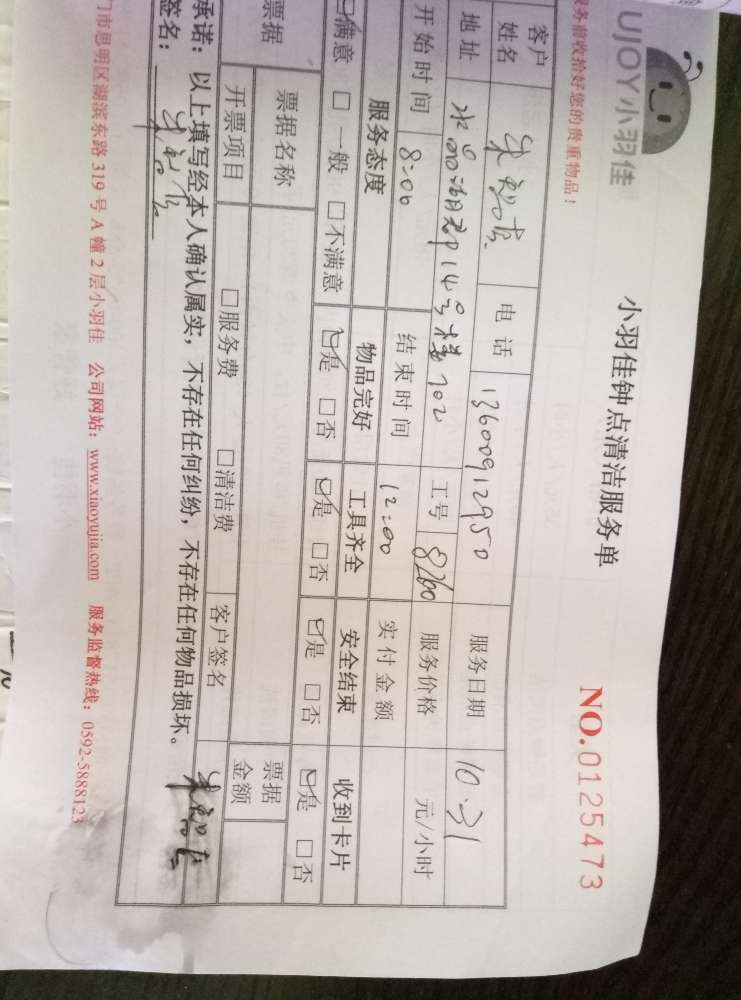 UJOY小羽佳
小羽佳钟点清洁服务单
NO.0125473
务前收拾好您的贵重物品！
客户姓名 朱 电话 13600912950 服务日期 10.31
地址 水晶湖郡14号楼702 工号 8260 服务价格 元/小时
开始时间 8:00 结束时间 12:00 实付金额
服务态度 物品完好 工具齐全 安全结束 收到卡片
☑满意 □一般 □不满意 ☑是 □否 ☑是 □否 ☑是 □否 ☑是 □否
票据 票据名称 票据金额
开票项目 □服务费 □清洁费 客户签名
承诺：以上填写经本人确认属实，不存在任何纠纷，不存在任何物品损坏。
签名：朱 朱
门市思明区湖滨东路319号A幢2层小羽佳 公司网站：www.xiaoyujia.com 服务监督热线：0592-5888123